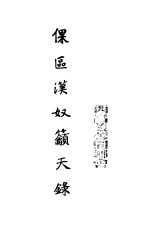 倮區漢奴籲天錄